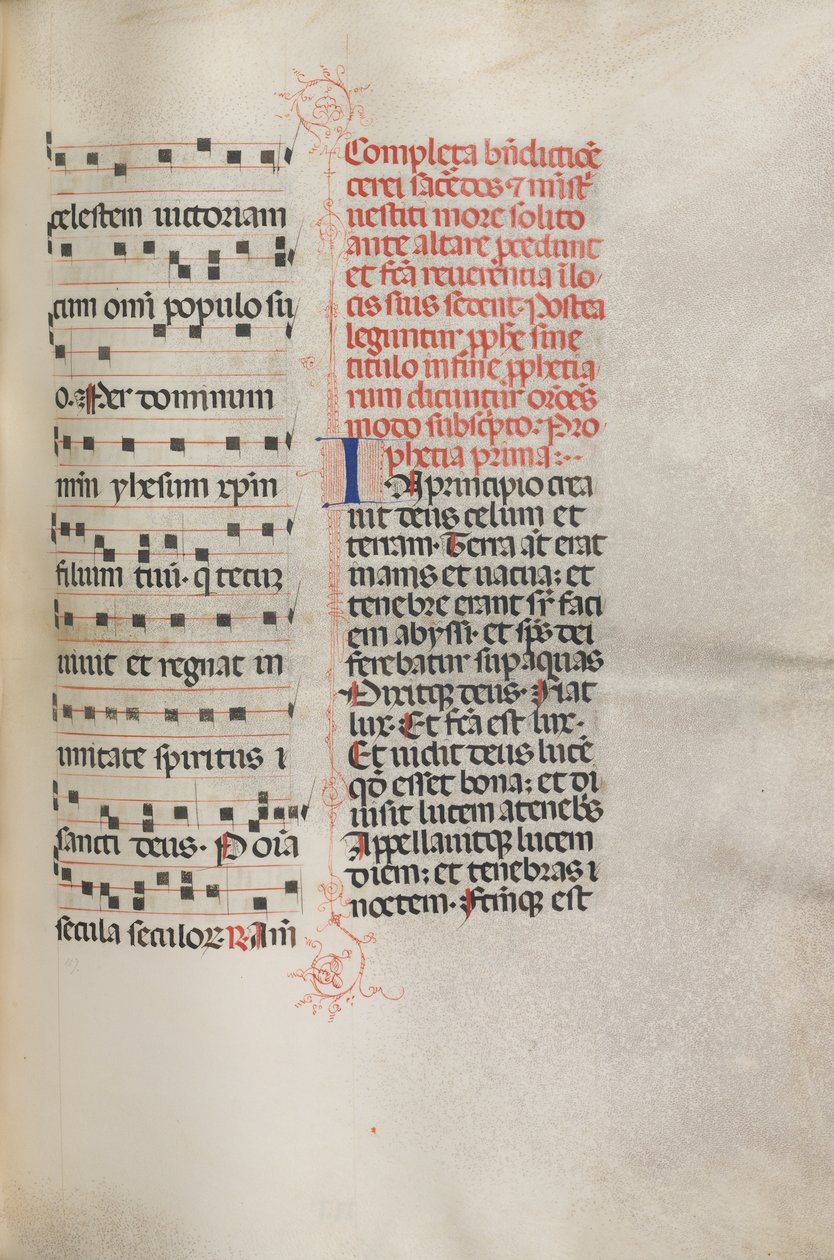 celestem uictoriam
cum om̄i populo su
o. Per dominum
nr̄m yhesum xp̄m
filium tuum. q̄ tecuȝ
uiuit et regnat in
unitate spiritus
sancti deus. P oīa
secula seculoꝝ. R. Am̄
Completa bn̄dictiōe
cerei sac̄edos ⁊ minist̄
uestiti more solito
ante altare ꝓcedunt
et fc̄a reuerentia ī lo
cis suis sedent. Postea
leguntur ꝓphē sine
titulo in fine ꝓphetia
rum dicuntur or̄oes
modo subsc̄pto. Pro
phetia prima:
IN principio crea
uit deus celum et
terram. Terra aūt erat
inanis et uacua; et
tenebre erant sr̄ faci
em abyssi. et sp̄s dei
ferebatur sup aquas
Dixitqꝫ deus. Fiat
lux. Et fc̄a est lux.
Et uidit deus lucē
qđ esset bona; et di
uisit lucem a tenebͥs
Appellauitqꝫ lucem
diem; et tenebras
noctem. Fc̄mqꝫ est